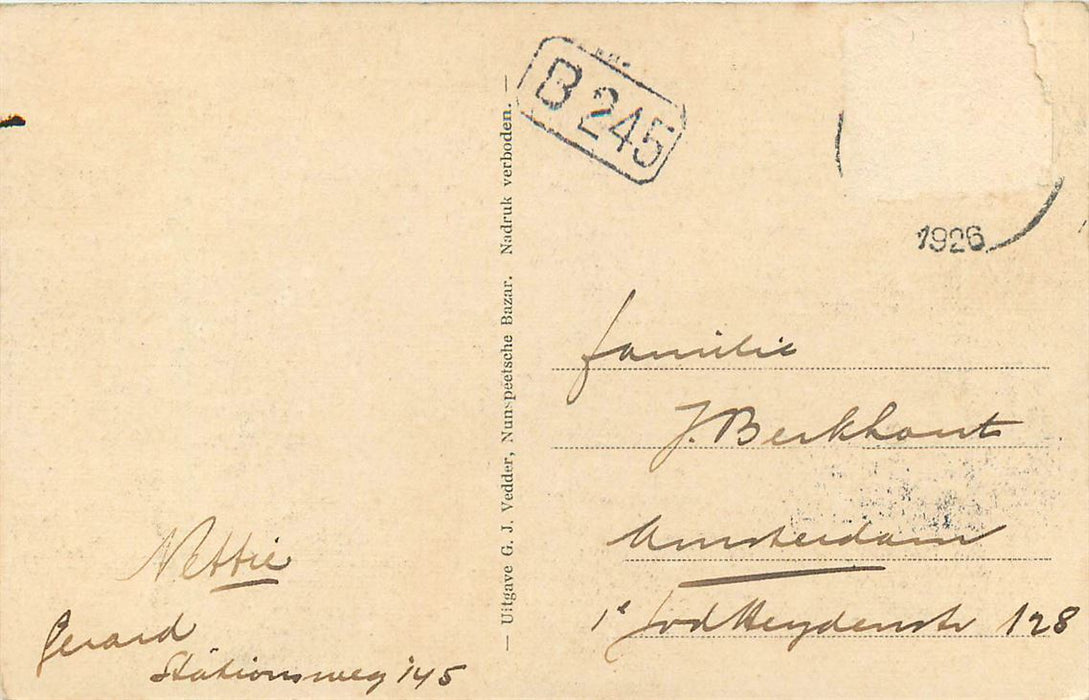 B 245
1926
— Uitgave G. J. Vedder, Nunspeetsche Bazar. Nadruk verboden. —
familie
J. Berkhout
Amsterdam
1e J v d Heydenstr 128
Nettie
Gerard
Stationsweg 145